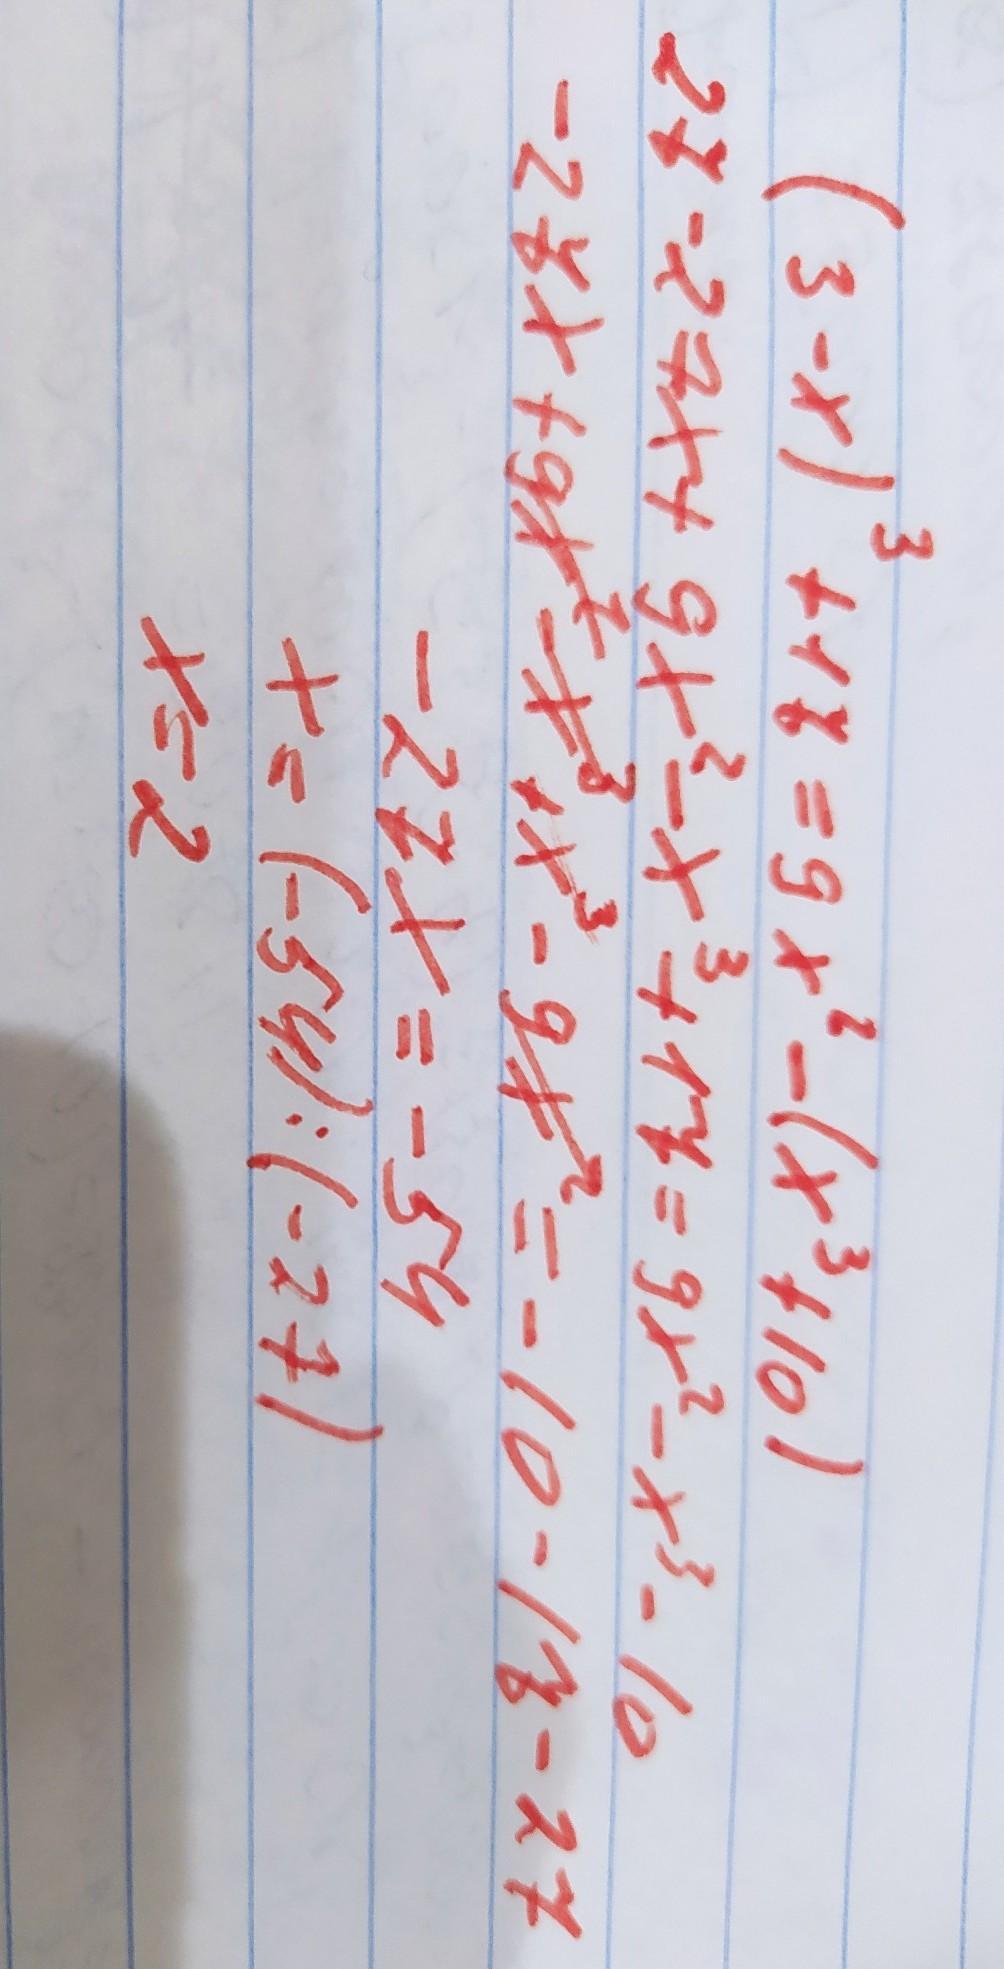 (3-x)³+17=9x²-(x³+10)
27-27x+9x²-x³+17=9x²-x³-10
-27x+9x²-x³+x³-9x²=-10-17-27
-27x=-54
x=(-54):(-27)
x=2